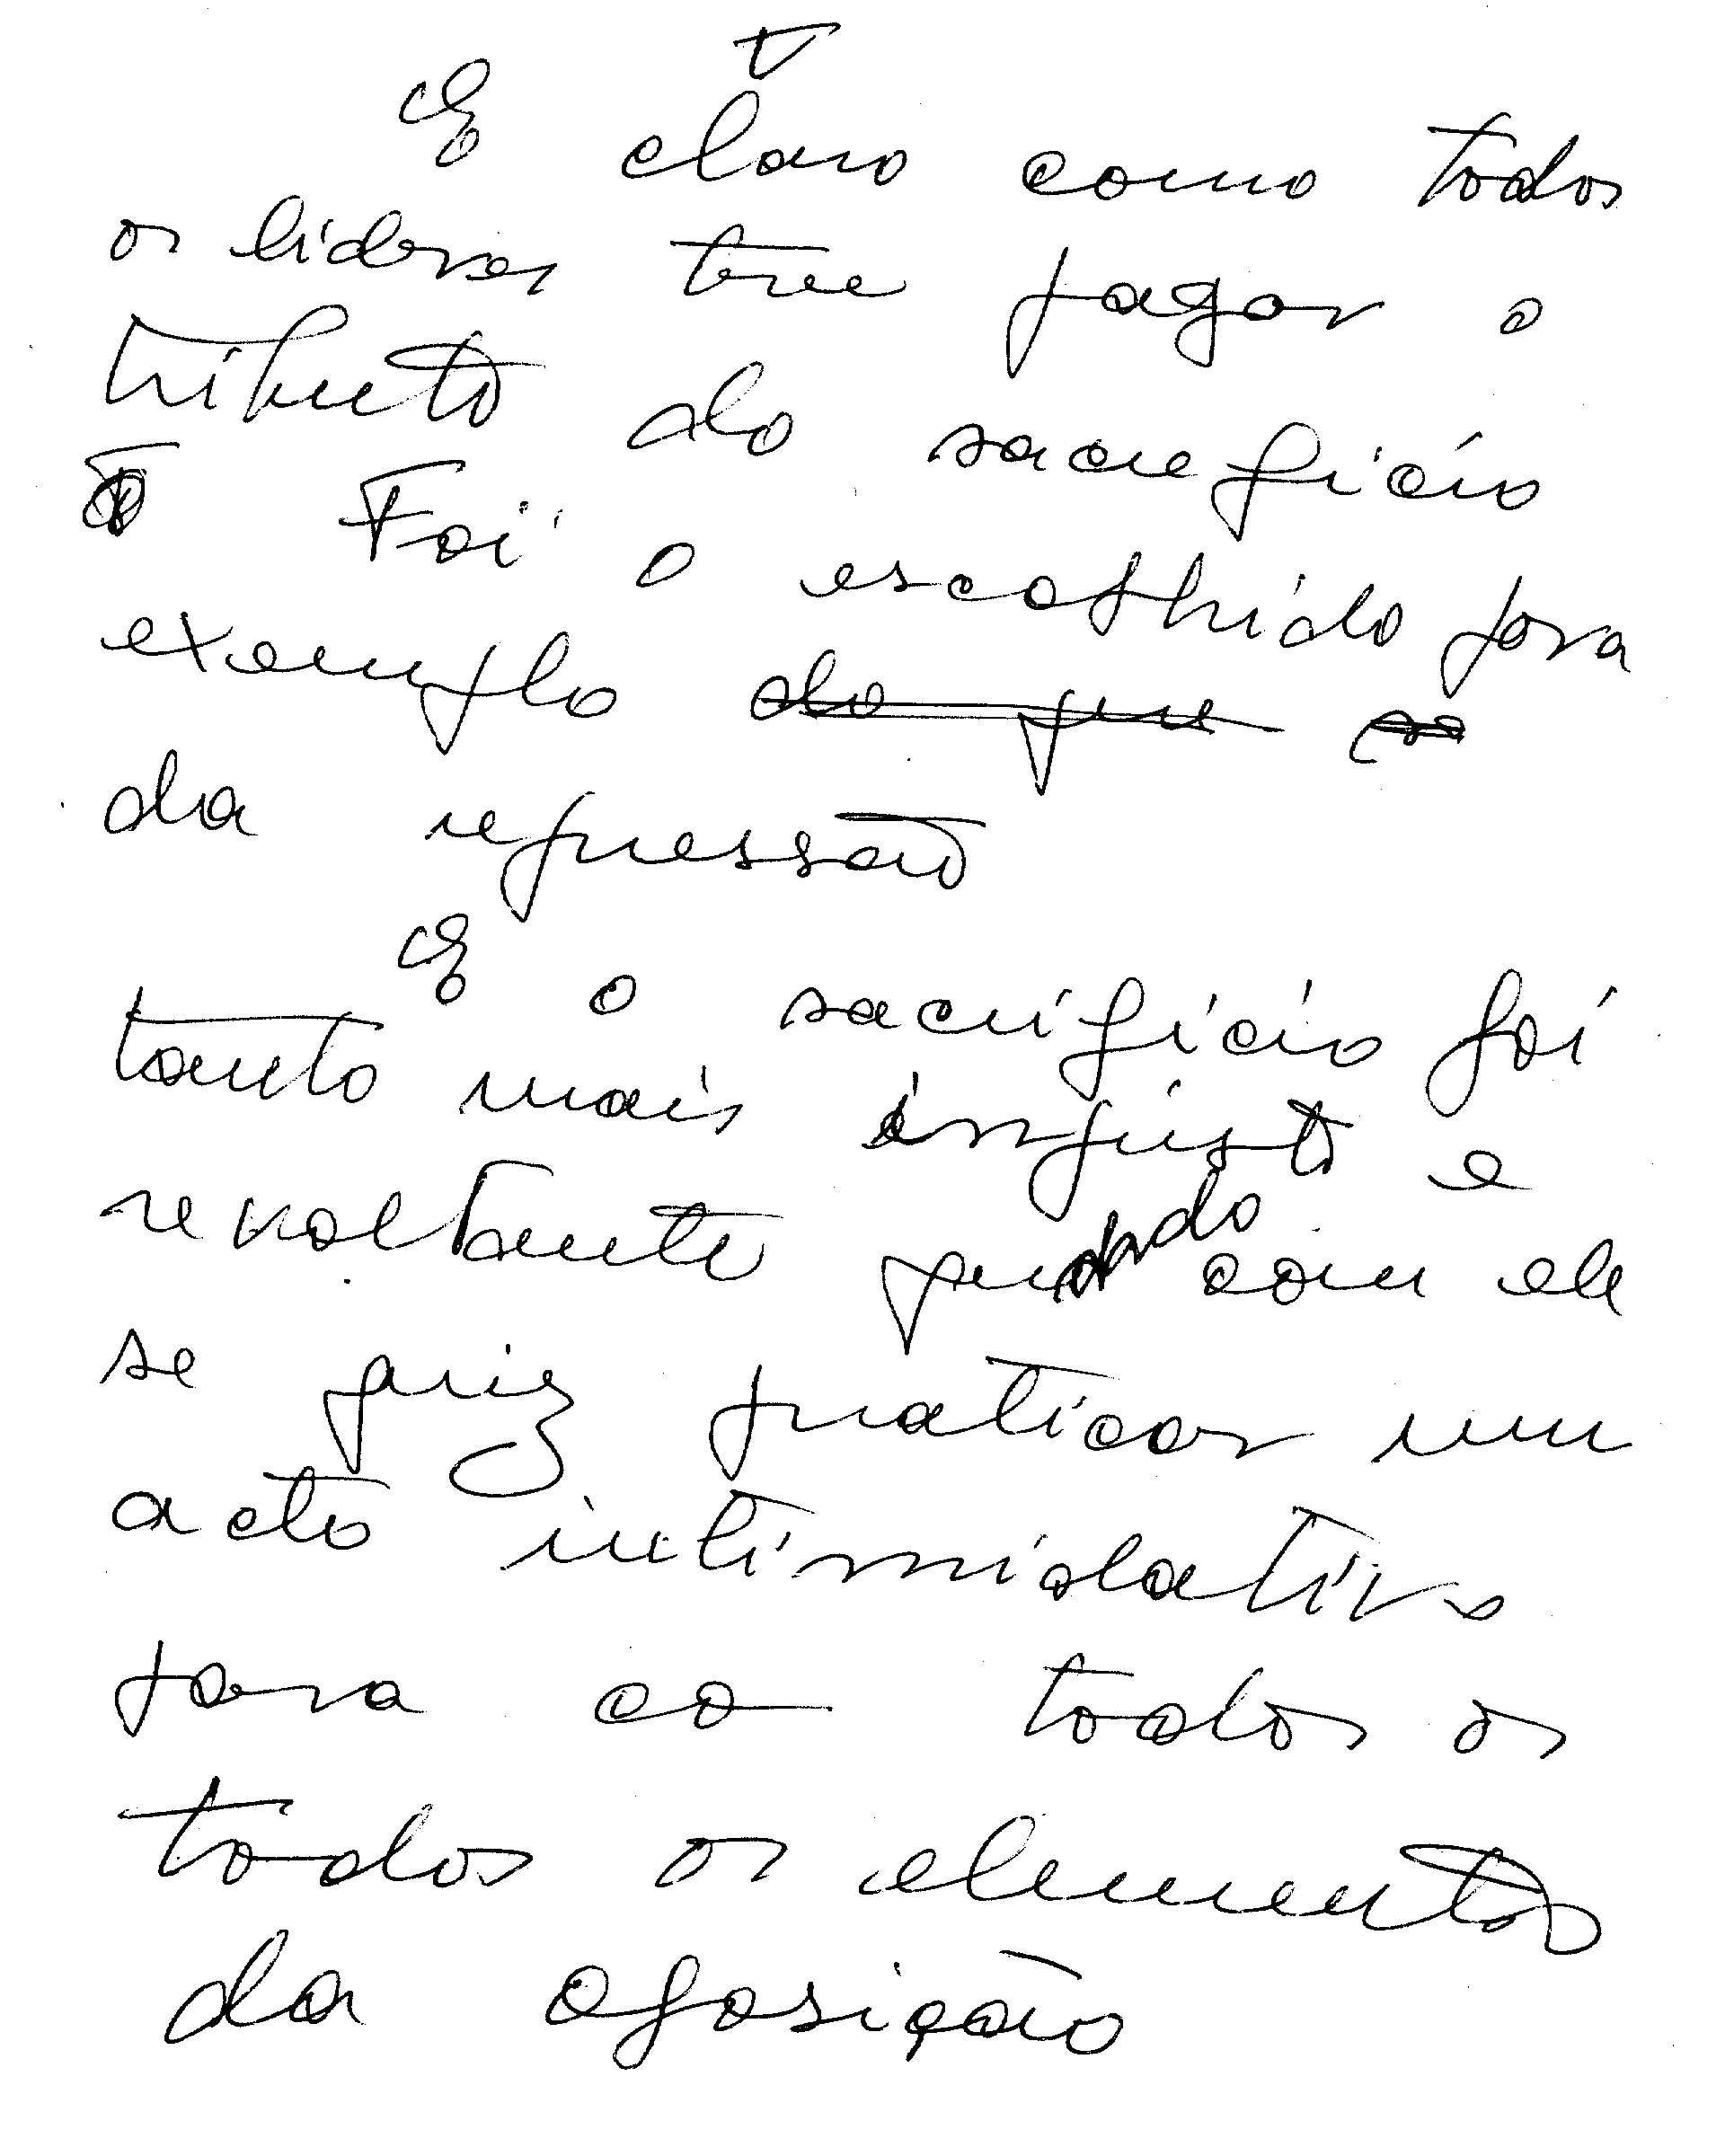 V
E claro como todos
os lideres teve pagar o
tributo do sacrefício
Foi o escolhido para
exemplo do que
da repressão
E o sacrifício foi
tanto mais injusto e
revoltante quando com ele
se quiz praticar um
acto intimidativo
para co todos os
todos os elementos
da oposição